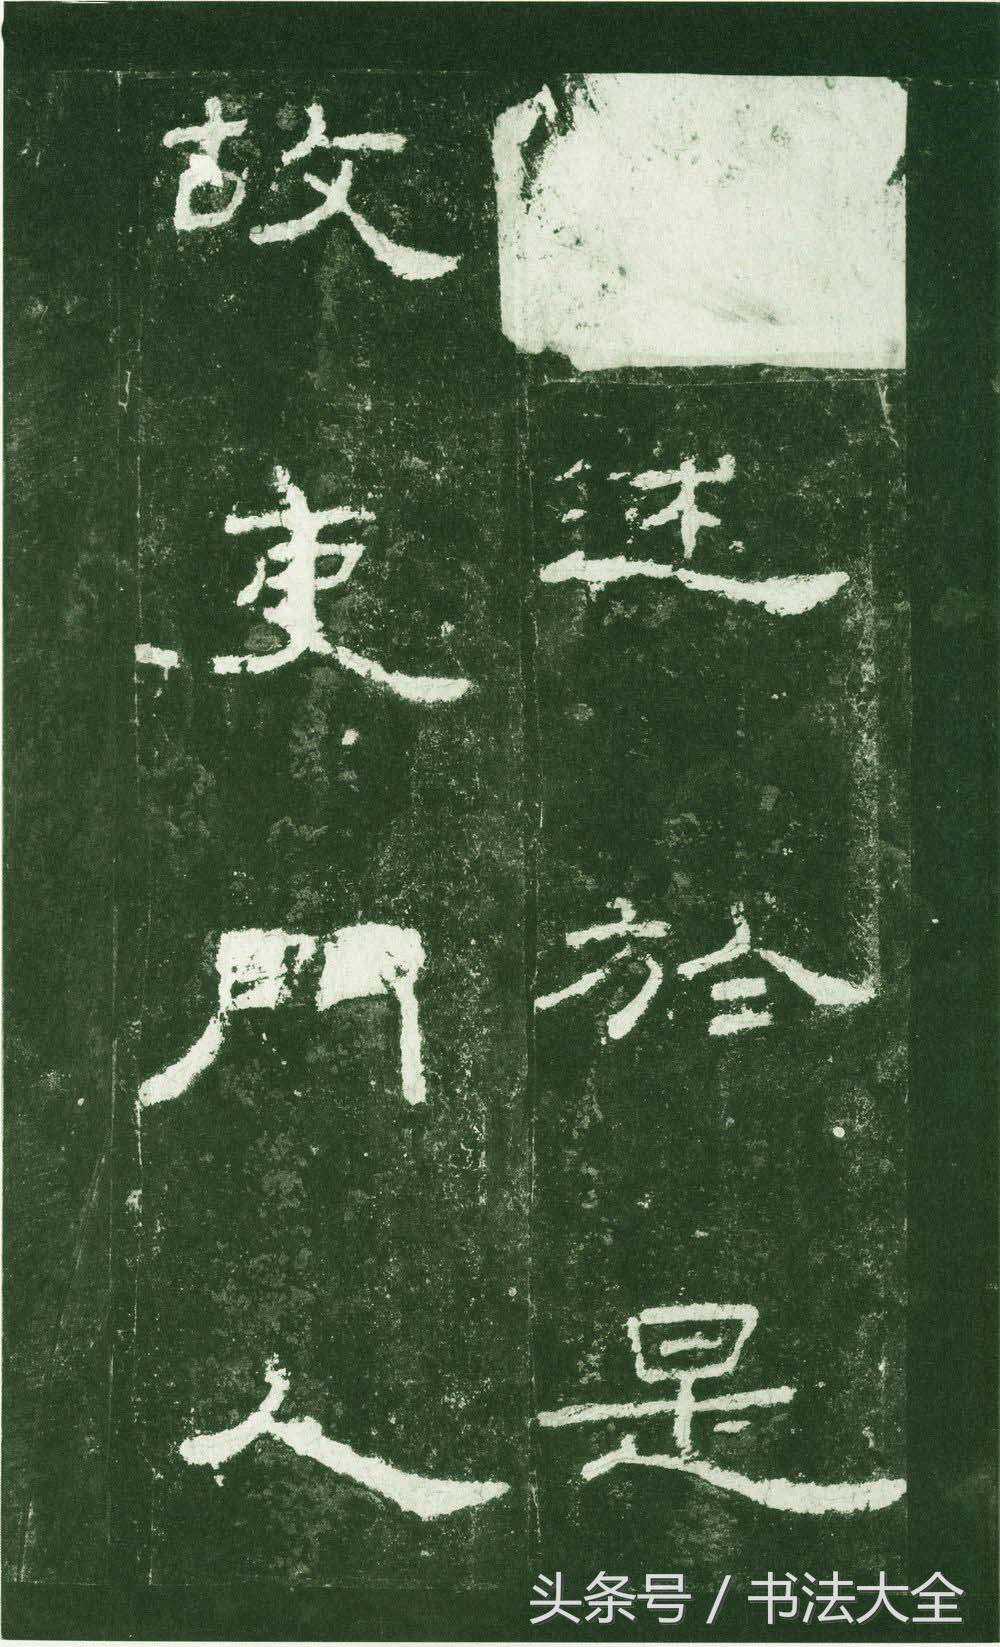 述於是
故吏門人
头条号 / 书法大全